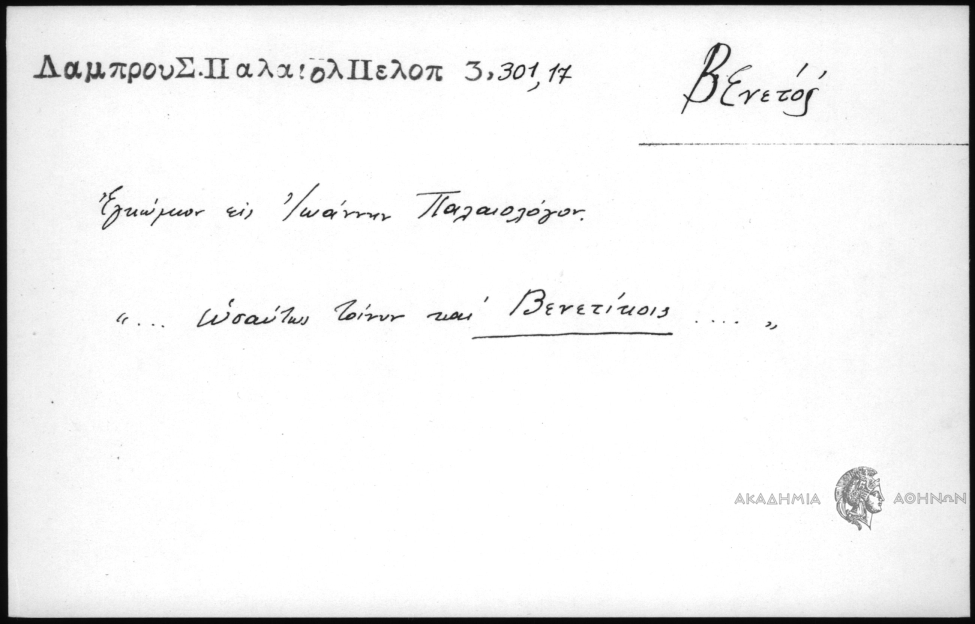 ΛαμπρουΣ.ΠαλαιολΠελοπ 3,301,17
Βενετός
Ἐγκώμιον εἰς Ἰωάννην Παλαιολόγον.
"... ὡσαύτως τοίνυν καὶ Βενετίκοις .... "
ΑΚΑΔΗΜΙΑ ΑΘΗΝΩΝ